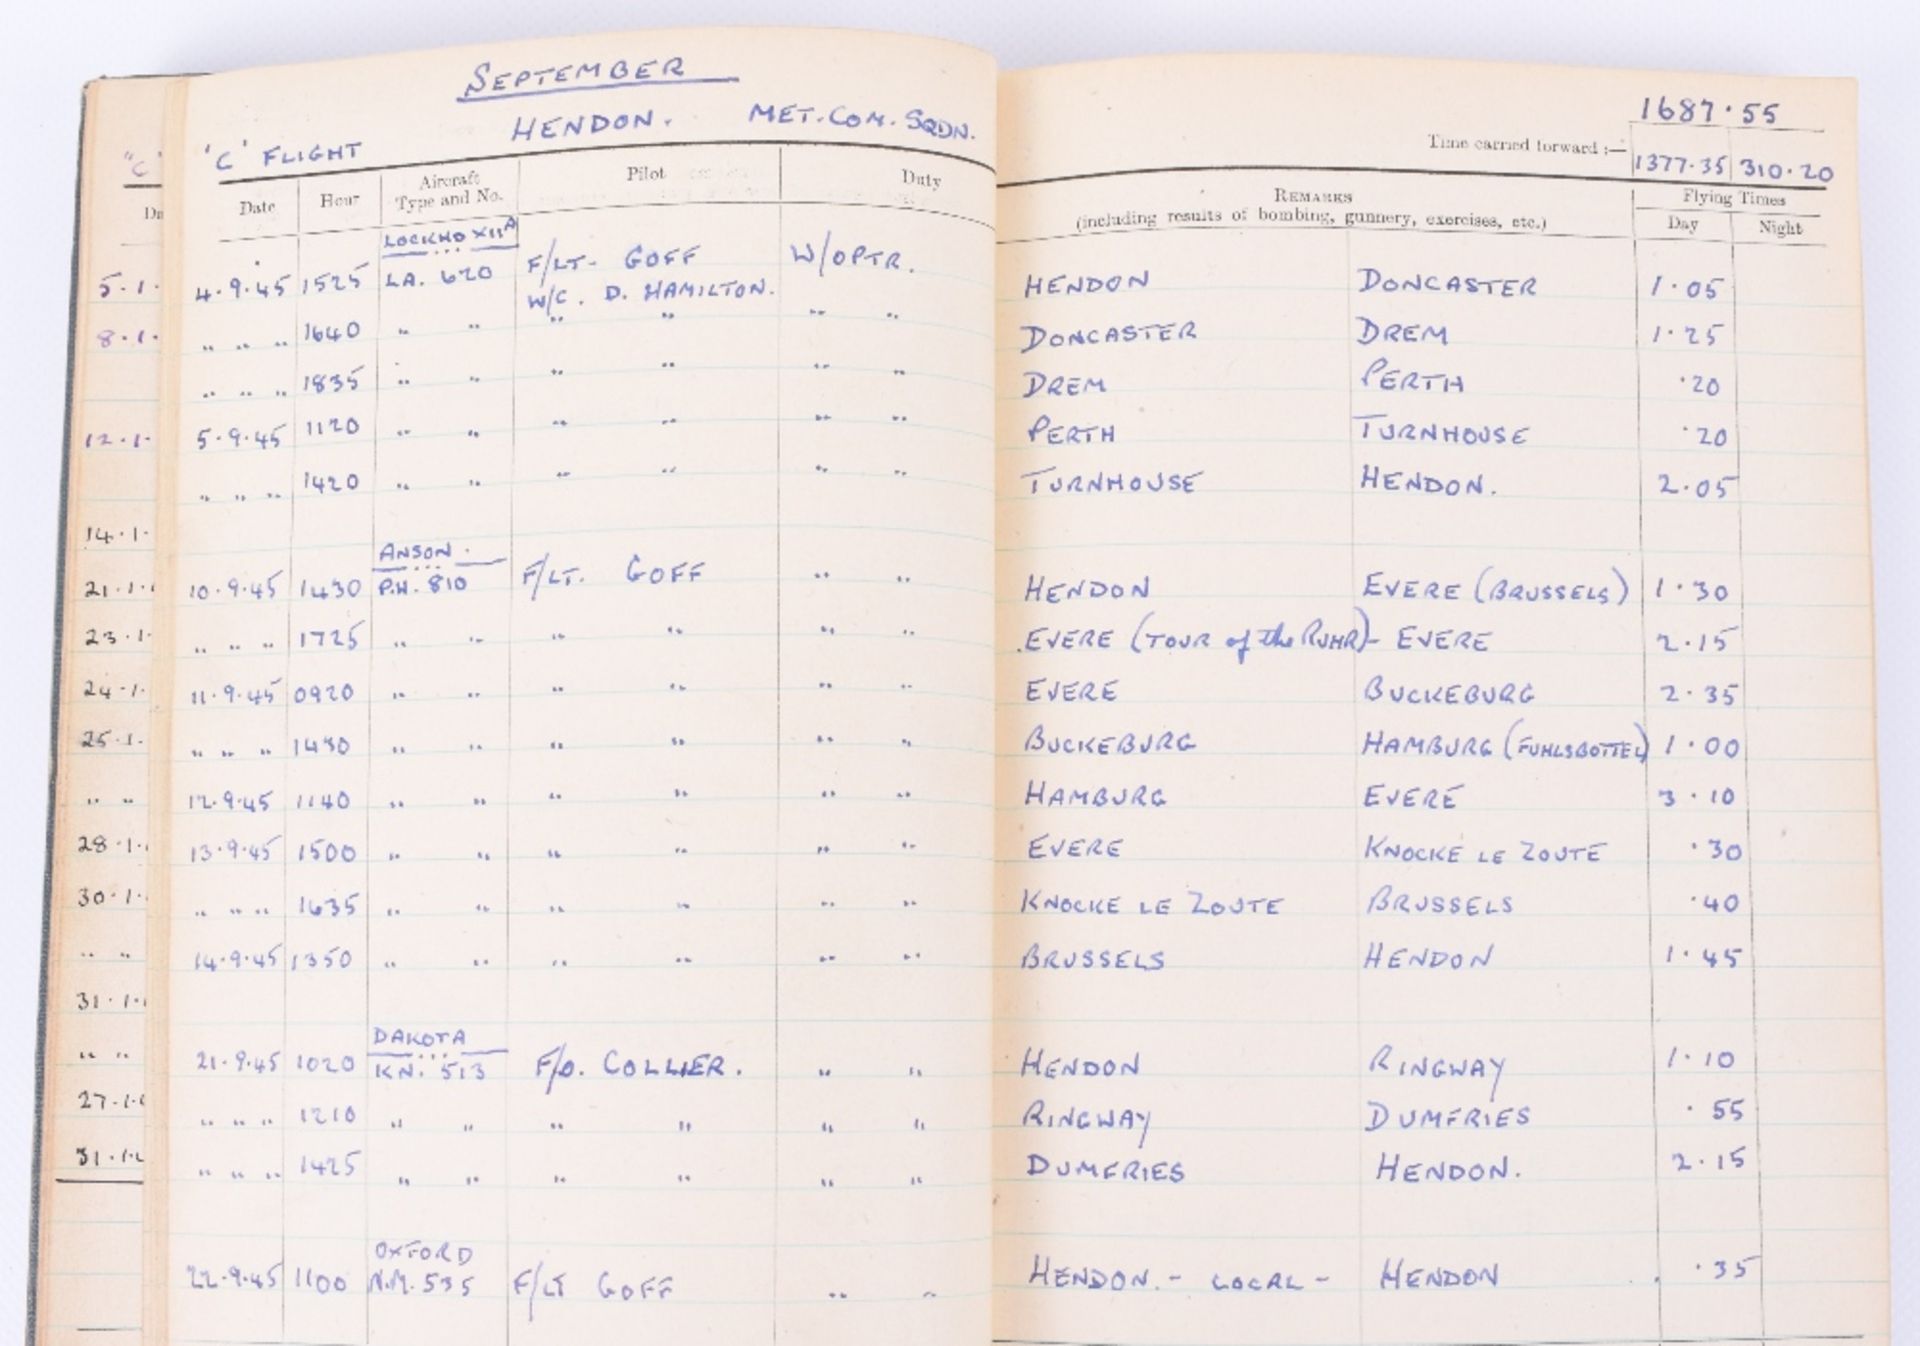 SEPTEMBER
'C' FLIGHT HENDON. MET. COM. SQDN.
1687.55
Time carried forward :— 1377.35 310.20
Date Hour Aircraft Type and No. Pilot Duty REMARKS (including results of bombing, gunnery, exercises, etc.) Flying Times Day Night
LOCKHD XIIA
4.9.45 1525 LA. 620 F/LT- GOFF W/OPTR. HENDON DONCASTER 1.05
W/C. D. HAMILTON.
" " " 1640 " " " " " " DONCASTER DREM 1.25
" " " 1835 " " " " " " DREM PERTH .20
5.9.45 1120 " " " " " " PERTH TURNHOUSE .20
" " " 1420 " " " " " " TURNHOUSE HENDON. 2.05
ANSON.
10.9.45 1430 P.H. 810 F/LT. GOFF " " HENDON EVERE (BRUSSELS) 1.30
" " " 1725 " " " " " " EVERE (TOUR of the RUHR) - EVERE 2.15
11.9.45 0920 " " " " " " EVERE BUCKEBURG 2.35
" " " " " " " " " BUCKEBURG HAMBURG (FUHLSBOTTEL) 1.00
12.9.45 1140 " " " " " " HAMBURG EVERE 3.10
13.9.45 1500 " " " " " " EVERE KNOCKE LE ZOUTE .30
" " " 1635 " " " " " " KNOCKE LE ZOUTE BRUSSELS .40
14.9.45 1350 " " " " " " BRUSSELS HENDON 1.45
DAKOTA
21.9.45 1020 KN. 513 F/O. COLLIER. " " HENDON RINGWAY 1.10
" " " 1210 " " " " " " RINGWAY DUMFRIES .55
" " " 1425 " " " " " " DUMFRIES HENDON. 2.15
OXFORD
22.9.45 1100 N.M. 535 F/LT GOFF " " HENDON. - LOCAL - HENDON .35
"C"
5.1.
8.1.
12.1.
14.1.
21.1.
23.1.
24.1.
25.1.
" "
28.1.
30.1.
" "
31.1.
" "
27.1.
31.1.